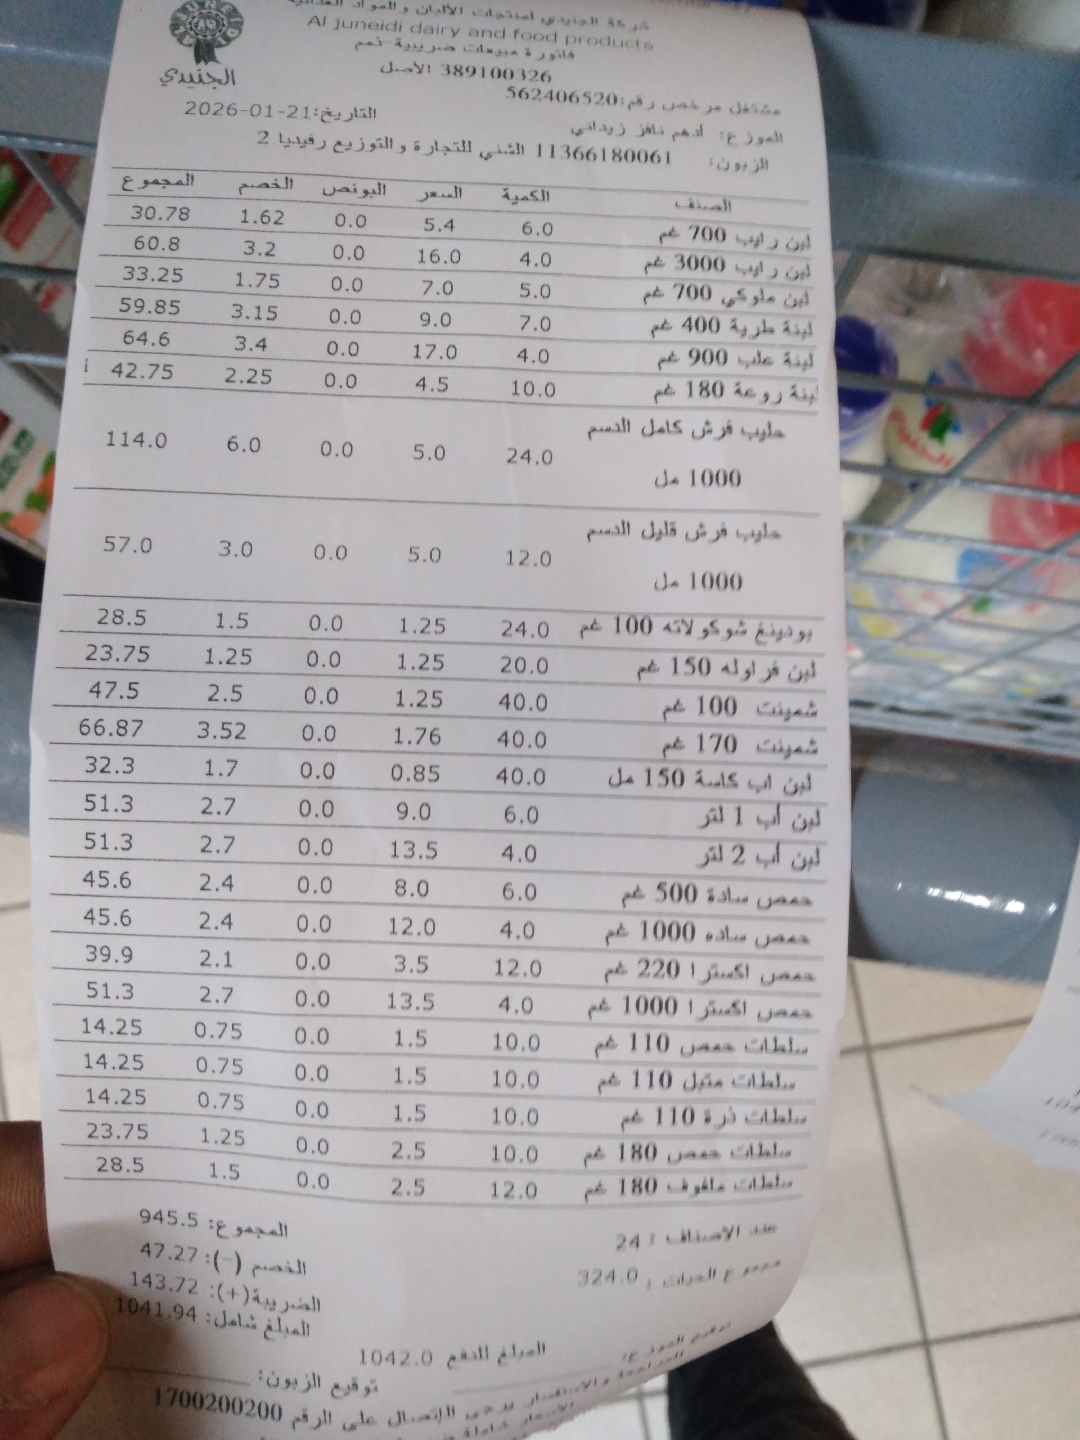 شركة الجنيدي لمنتجات الألبان والمواد الغذائية
Al juneidi dairy and food products
فاتورة مبيعات ضريبية-ذمم
الجنيدي
389100326 الأصل
مشتغل مرخص رقم:562406520
التاريخ:2026-01-21
الموزع: أدهم نافز زيداني
الزبون: 11366180061 الشني للتجارة والتوزيع رفيديا 2
الصنف الكمية السعر البونص الخصم المجموع
لبن رايب 700 غم 6.0 5.4 0.0 1.62 30.78
لبن رايب 3000 غم 4.0 16.0 0.0 3.2 60.8
لبن ملوكي 700 غم 5.0 7.0 0.0 1.75 33.25
لبنة طرية 400 غم 7.0 9.0 0.0 3.15 59.85
لبنة علب 900 غم 4.0 17.0 0.0 3.4 64.6
لبنة روعة 180 غم 10.0 4.5 0.0 2.25 42.75
حليب فرش كامل الدسم
1000 مل 24.0 5.0 0.0 6.0 114.0
حليب فرش قليل الدسم
1000 مل 12.0 5.0 0.0 3.0 57.0
بودينغ شوكولاته 100 غم 24.0 1.25 0.0 1.5 28.5
لبن فراوله 150 غم 20.0 1.25 0.0 1.25 23.75
شمينت 100 غم 40.0 1.25 0.0 2.5 47.5
شمينت 170 غم 40.0 1.76 0.0 3.52 66.87
لبن اب كاسة 150 مل 40.0 0.85 0.0 1.7 32.3
لبن أب 1 لتر 6.0 9.0 0.0 2.7 51.3
لبن أب 2 لتر 4.0 13.5 0.0 2.7 51.3
حمص سادة 500 غم 6.0 8.0 0.0 2.4 45.6
حمص ساده 1000 غم 4.0 12.0 0.0 2.4 45.6
حمص اكسترا 220 غم 12.0 3.5 0.0 2.1 39.9
حمص اكسترا 1000 غم 4.0 13.5 0.0 2.7 51.3
سلطات حمص 110 غم 10.0 1.5 0.0 0.75 14.25
سلطات متبل 110 غم 10.0 1.5 0.0 0.75 14.25
سلطات ذرة 110 غم 10.0 1.5 0.0 0.75 14.25
سلطات حمص 180 غم 10.0 2.5 0.0 1.25 23.75
سلطات ملفوف 180 غم 12.0 2.5 0.0 1.5 28.5
عدد الاصناف : 24
مجموع الحبات : 324.0
المجموع: 945.5
الخصم (-): 47.27
الضريبة(+): 143.72
المبلغ شامل: 1041.94
المبلغ للدفع 1042.0
توقيع الموزع:
توقيع الزبون:
للمراجعة والاستفسار يرجى الإتصال على الرقم 1700200200
الاسعار شاملة